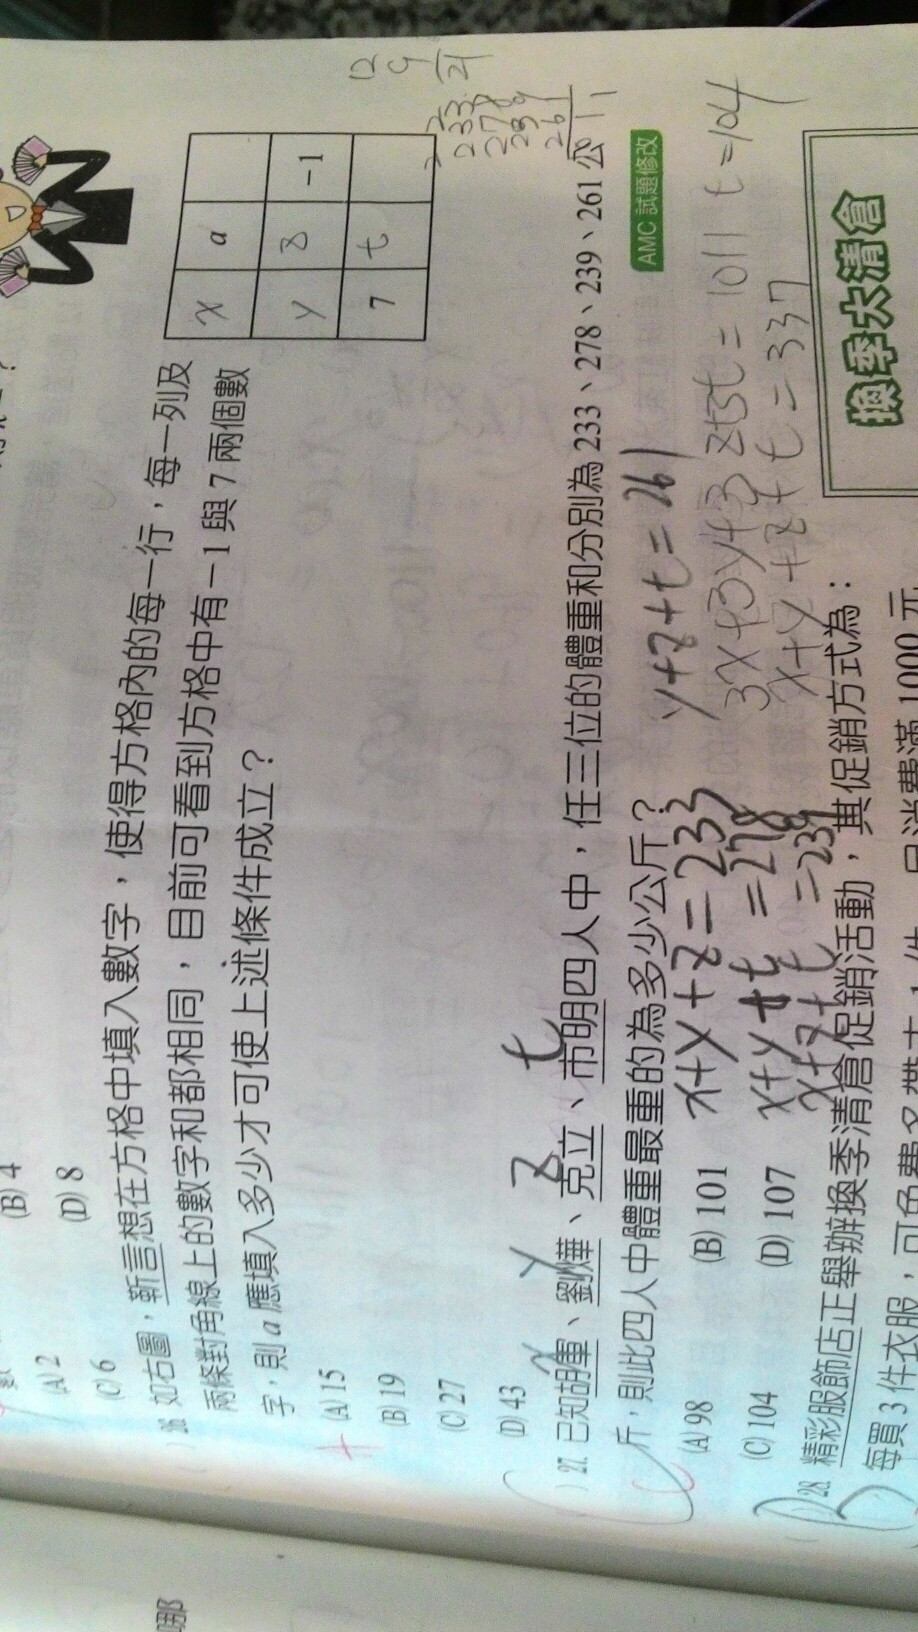 (A) 2
(B) 4
(C) 6
(D) 8
26. 如右圖，靳言想在方格中填入數字，使得方格內的每一行，每一列及
兩條對角線上的數字和都相同，目前可看到方格中有－1 與 7 兩個數
字，則 a 應填入多少才可使上述條件成立？
x a
y z -1
7 t
(A) 15
(B) 19
(C) 27
(D) 43
x y z t
27. 已知胡軍、劉燁、克立、市明四人中，任三位的體重和分別為 233、278、239、261 公
斤，則此四人中體重最重的為多少公斤？
AMC 試題修改
(A) 98
(B) 101
(C) 104
(D) 107
12
9
21
233
278
239
261
x+y+z=233
x+y+t=278
x+z+t=239
y+z+t=261
3x+3y+3z+3t=1011
x+y+z+t=337
t=104
B
28. 精彩服飾店正舉辦換季清倉促銷活動，其促銷方式為：
每買 3 件衣服，可免費多帶走 1 件
消費滿 1000 元
換季大清倉
哪